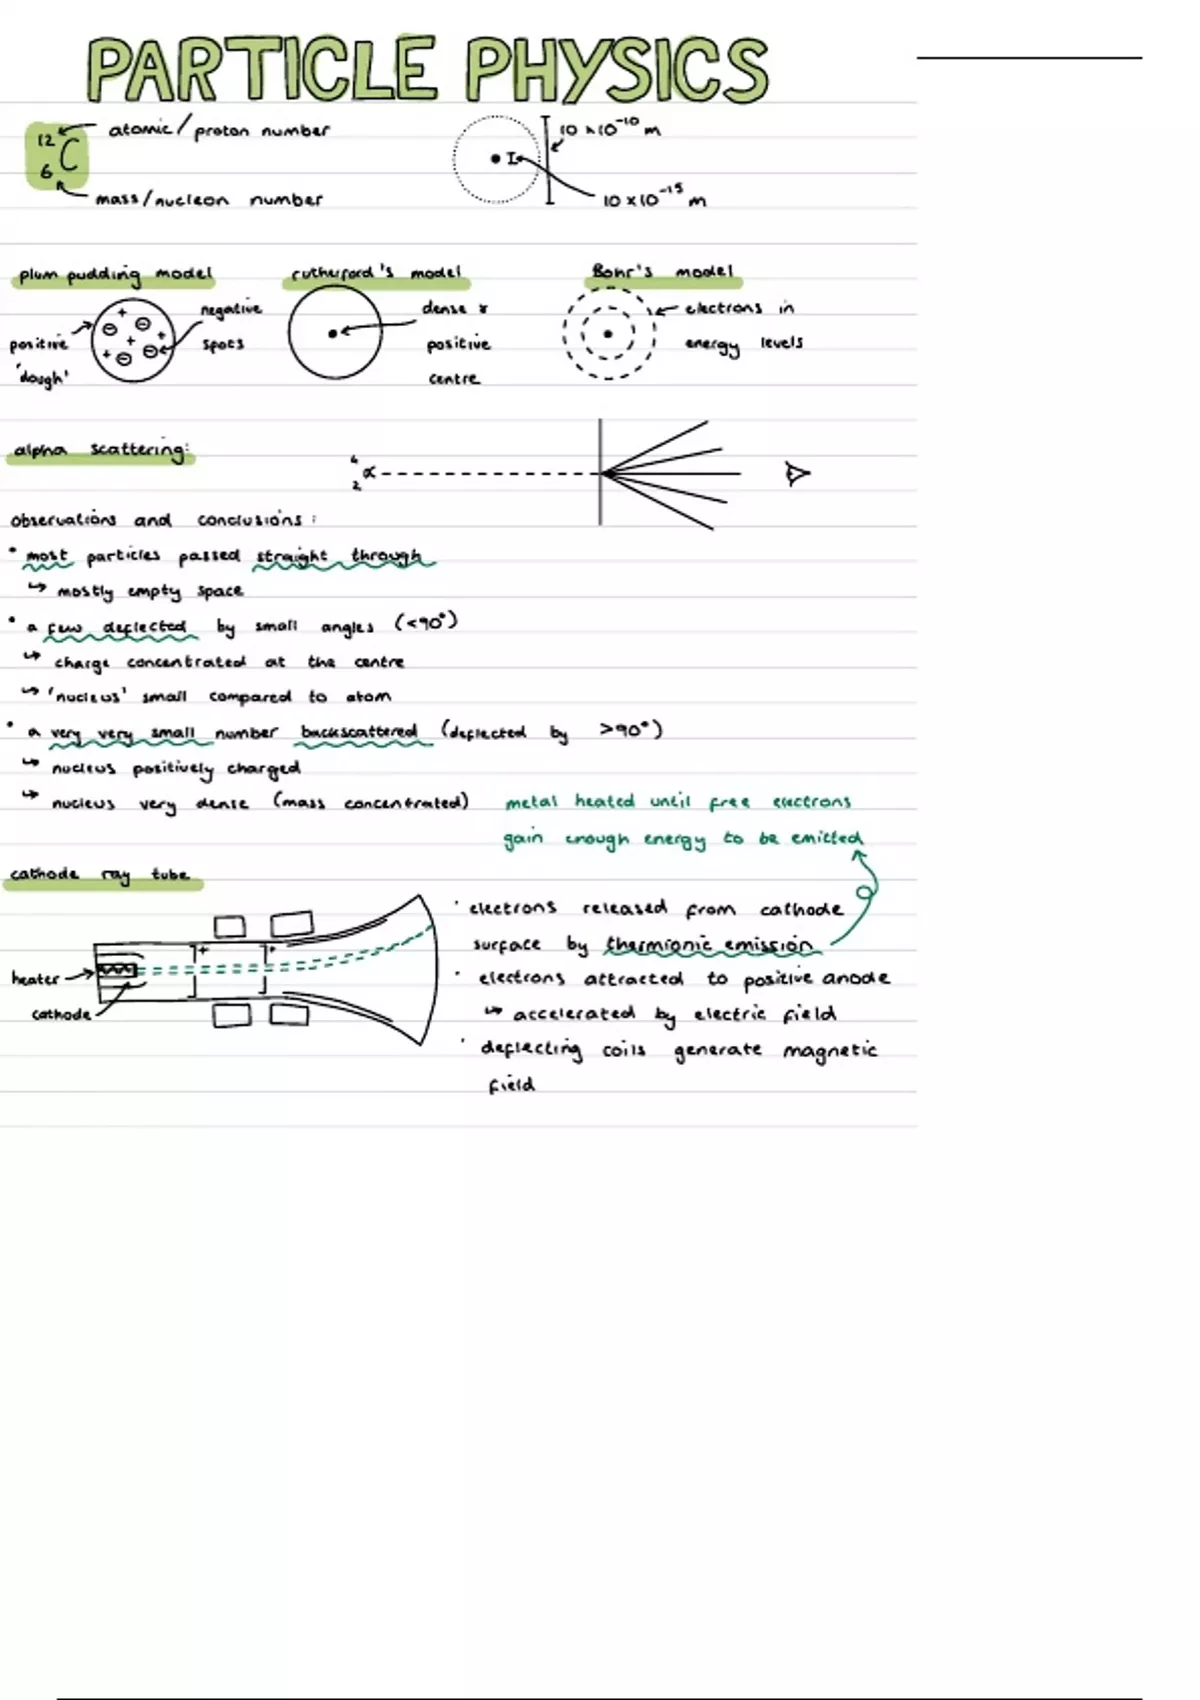 PARTICLE PHYSICS
12 6 C
atomic/proton number
mass/nucleon number
10 x 10⁻¹⁰ m
10 x 10⁻¹⁵ m
plum pudding model
positive 'dough'
+ ⊖ ⊖ + + ⊖ ⊖
negative spots
rutherford's model
dense & positive centre
Bohr's model
electrons in energy levels
alpha scattering:
4 2 α
observations and conclusions:
• most particles passed straight through
↳ mostly empty space
• a few deflected by small angles (<90°)
↳ charge concentrated at the centre
↳ 'nucleus' small compared to atom
• a very very small number backscattered (deflected by >90°)
↳ nucleus positively charged
↳ nucleus very dense (mass concentrated)
metal heated until free electrons
gain enough energy to be emitted
cathode ray tube
heater
cathode
+ +
• electrons released from cathode
surface by thermionic emission
• electrons attracted to positive anode
↳ accelerated by electric field
• deflecting coils generate magnetic
field